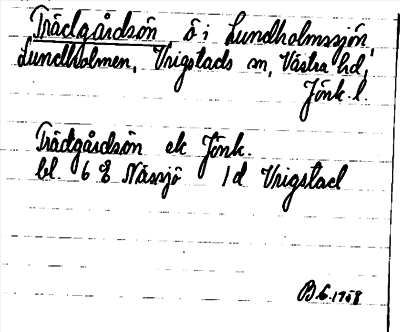 Trädgårdsön ö i Lundholmssjön,
Lundholmen, Vrigstads sn, Västra hd,
Jönk. l.
Trädgårdsön ek Jönk.
bl. 6 E Nässjö 1d Vrigstad
B.G. 1958